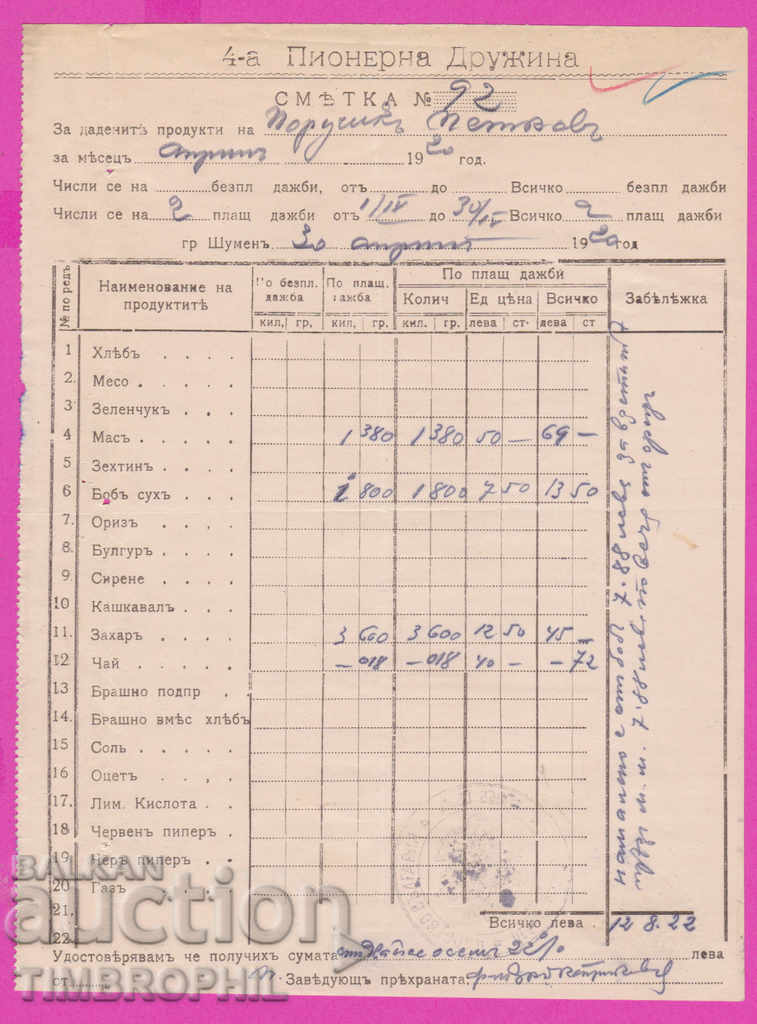 4-а Пионерна Дружина
СМѢТКА № 92
За даденитѣ продукти на Поручикъ Петковъ
за мѣсецъ априлъ 1920 год.
Числи се на безпл дажби, отъ до Всичко безпл дажби
Числи се на 2 плащ дажби отъ 1/IV до 30/IV Всичко 2 плащ дажби
гр Шуменъ 30 априлъ 1920 год
№ по редъ Наименование на продуктитѣ По безпл. дажба По плащ. дажба По плащ дажби Забѣлѣжка
Колич Ед цѣна Всичко
кил, гр, кил, гр. кил. гр. лева ст· лева ст
1 Хлѣбъ
2. Месо
3 Зеленчукъ
4 Масъ 1 380 1 380 50 — 69 —
5 Зехтинъ
6 Бобъ сухъ 1 800 1 800 7 50 13 50
7. Оризъ
8. Булгуръ
9. Сирене
10 Кашкавалъ
11. Захаръ 3 600 3 600 12 50 45 —
12 Чай — 018 — 018 40 — — 72
13 Брашно подпр
14. Брашно вмѣс хлѣбъ
15 Соль
16 Оцетъ
17. Лим. Кислота
18 Червенъ пиперъ
19 Черъ пиперъ
20 Газъ
21.
22.
Всичко лева 128.22
Удостовѣрявам че получих сумата сто двадесе осемъ 22% лева
ст. Завeдующъ прѣхраната:
BALKAN
auction
TIMBROPHIL